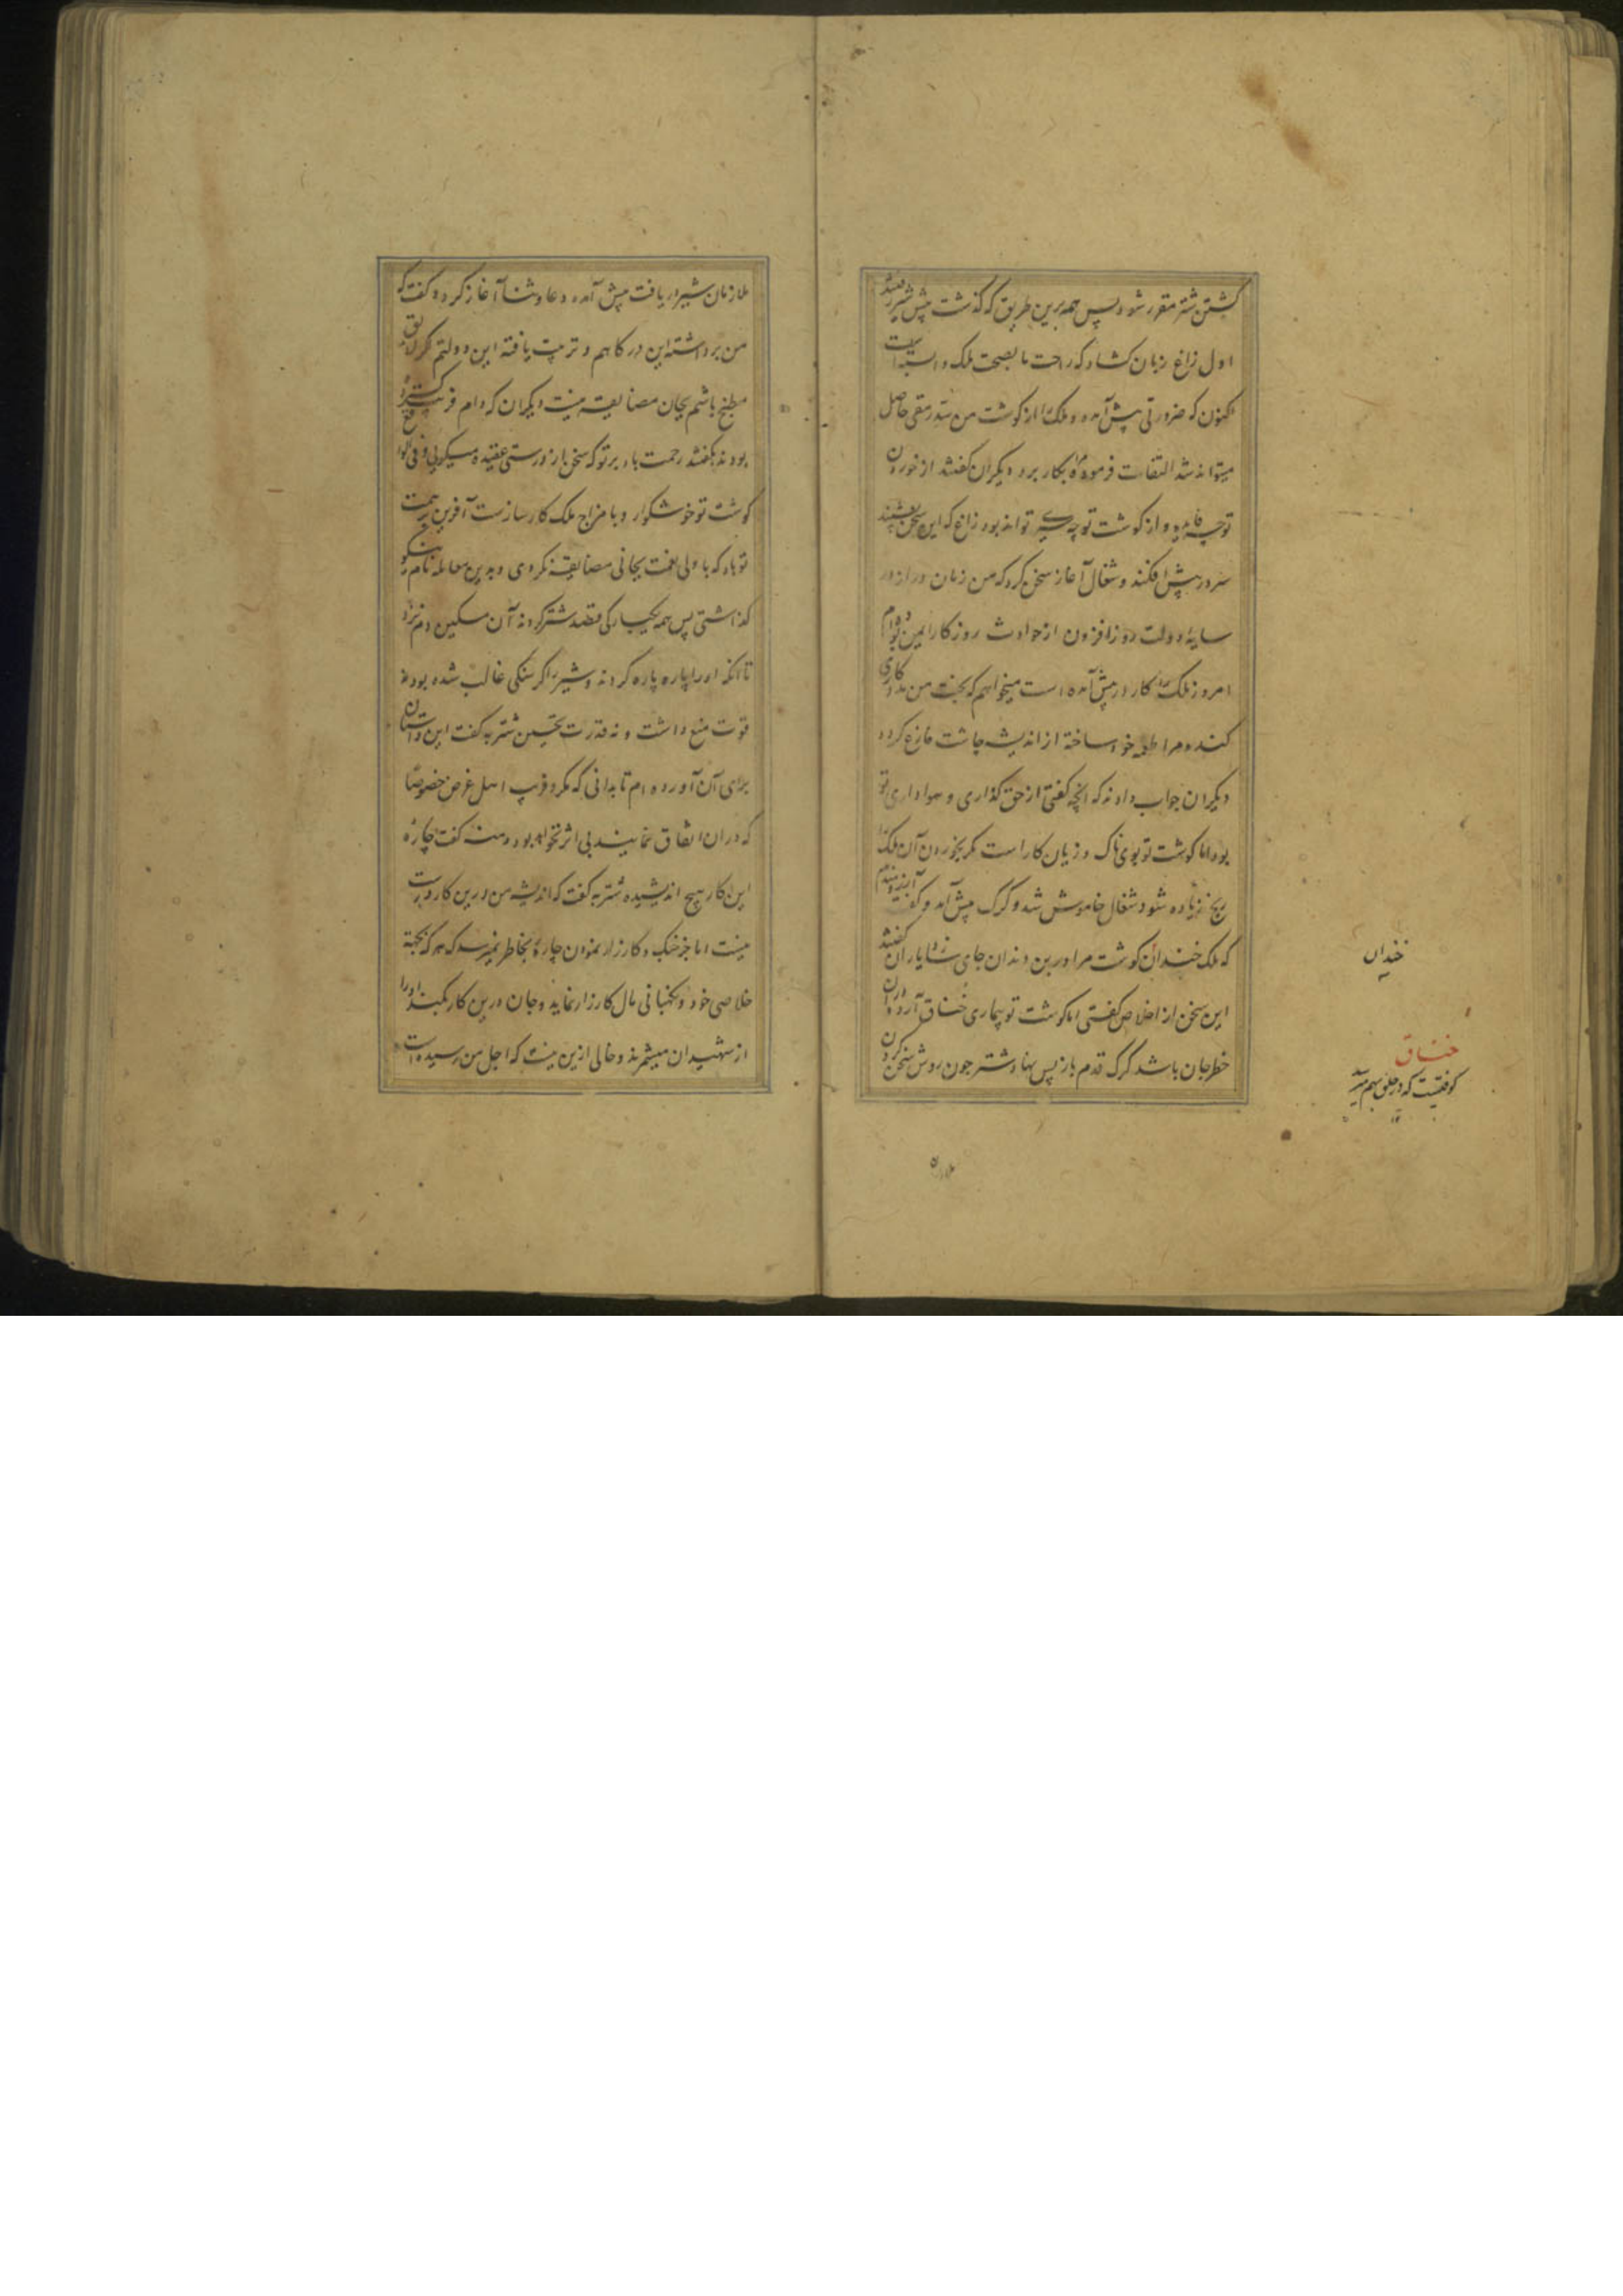 کشتن شتر مقرر شود پس همه برین طریق که گذشت پیش شیر رفتند
اول زاغ زبان کشاد که راحت ما بصحت ملک وابسته است
اکنون که ضرورتی پیش آمده و ملک را از گوشت من سد رمقی حاصل
میتواند شد التفات فرموده مرا بکار برد دیگران گفتند از خوردن
تو چه فایده و از گوشت تو چه سیری تواند بود زاغ که این سخن بشنید
سر در پیش افکند و شغال آغاز سخن کرد که من زمان دراز در
سایه دولت روزافزون از حوادث روزگار ایمن بوده‌ام
امروز ملک را کار در پیش آمده است میخواهم که بخت من مددکاری
کند و مرا طعمه خود ساخته از اندیشه چاشت فارغ گردد
دیگران جواب دادند که آنچه گفتی از حق گذاری و هواداری تو
بود اما گوشت تو بوی ناک و زیان کار است مگر بخوردن آن ملک را
رنج زیاده شود شغال خاموش شد و گرگ پیش آمد و گفت آرزومندم
که ملک خندان گوشت مرا در بن دندان جای دهد یاران گفتند
این سخن از اخلاص گفتی اما گوشت تو بیماری خناق آرد و دران
خطر جان باشد گرگ قدم باز پس نهاد شتر چون روش سخن کردن
خندان
خناق
کوفتیست که در حلق بهم میرسد
ملازمان شیر دریافت پیش آمده دعا و ثنا آغاز کرد و گفت که
من برداشته این درگاهم و تربیت یافته این دولتم اگر لایق
مطبخ باشم بجان مضایقه نیست دیگران که دام فریب گسترده
بودند بگفتند رحمت باد بر تو که سخن باز درستی عقیده میگویی و فی الواقع
گوشت تو خوشگوار و با مزاج ملک کارسازست آفرین بر همت
تو باد که با ولی نعمت بجانی مضایقه نکردی و بدین معامله نام نیکو
گذاشتی پس همه یکبارگی قصد شتر کردند آن مسکین دم نزد
تا آنکه او را پاره پاره کردند و شیر را گرسنگی غالب شده بود نه
قوت منع داشت و نه قدرت تحسین شتربه گفت این داستان
برای آن آورده‌ام تا بدانی که مکر و فریب اهل غرض خصوصا
که دران اتفاق نمایند بی اثر نخواهد بود دمنه گفت چاره
این کار هیچ اندیشیده شتربه گفت که اندیشه من درین کار درست
نیست اما جز جنگ و کارزار نمودن چاره بخاطر نمیرسد که هر که بجهة
خلاصی خود و نگهبانی مال کارزار نماید و جان درین کار بکند او را
از شهیدان میشمرند و خالی ازین نیست که اجل من رسیده است